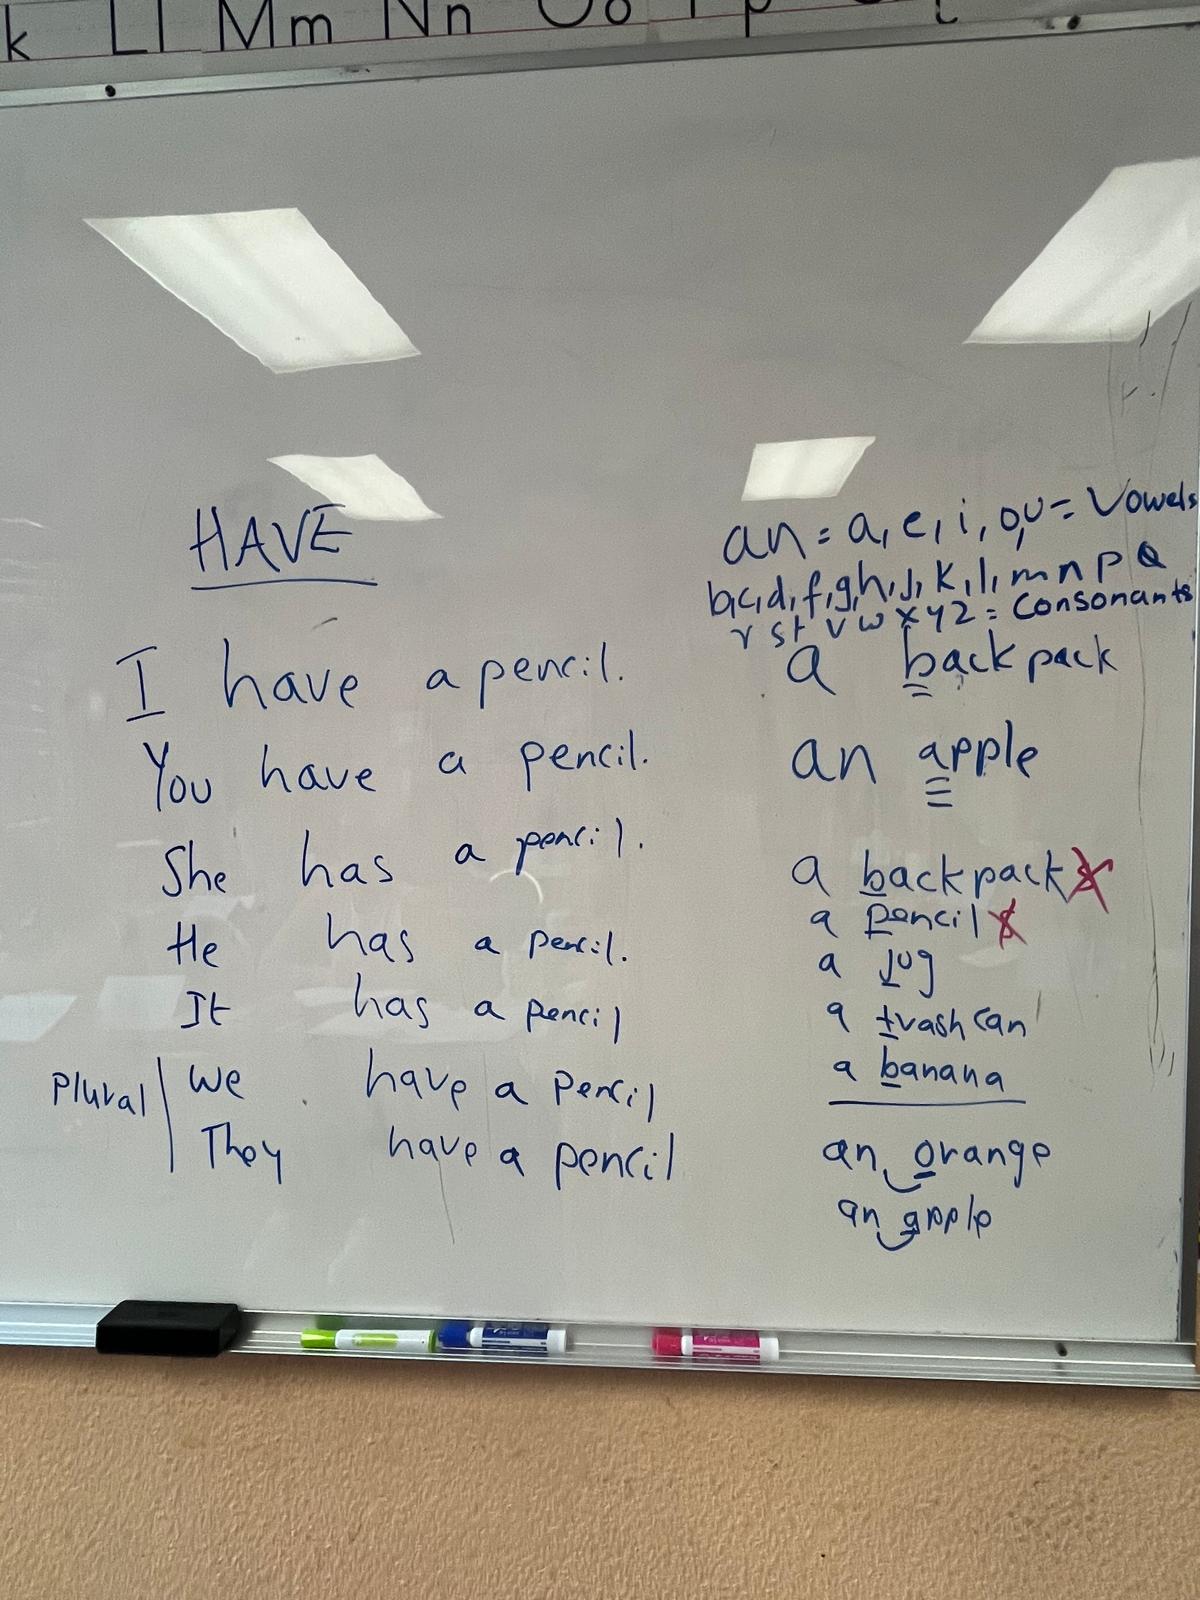 k Ll Mm Nn Oo
HAVE
I have a pencil.
You have a pencil.
She has a pencil.
He has a pencil.
It has a pencil
Plural
We have a pencil
They have a pencil
an = a, e, i, o, u = Vowels
b, c, d, f, g, h, j, k, l, m n p Q
r s t v w x y z = Consonants
a backpack
an apple
a backpacks
a pencils
a jug
a trash can
a banana
an orange
an apple